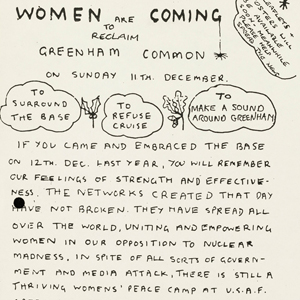 WOMEN ARE COMING
TO
RECLAIM
GREENHAM COMMON
ON SUNDAY 11TH. DECEMBER.
TO
SURROUND
THE BASE
TO
REFUSE
CRUISE
TO
MAKE A SOUND
AROUND GREENHAM
IF YOU CAME AND EMBRACED THE BASE
ON 12TH. DEC. LAST YEAR, YOU WILL REMEMBER
OUR FEELINGS OF STRENGTH AND EFFECTIVE-
NESS. THE NETWORKS CREATED THAT DAY
HAVE NOT BROKEN. THEY HAVE SPREAD ALL
OVER THE WORLD, UNITING AND EMPOWERING
WOMEN IN OUR OPPOSITION TO NUCLEAR
MADNESS, IN SPITE OF ALL SORTS OF GOVERN-
MENT AND MEDIA ATTACK, THERE IS STILL A
THRIVING WOMENS' PEACE CAMP AT U.S.A.F.
POSTERS WILL
BE AVAILABLE
SOON. MEANWHILE
PLEASE HELP
SPREAD THE NEWS